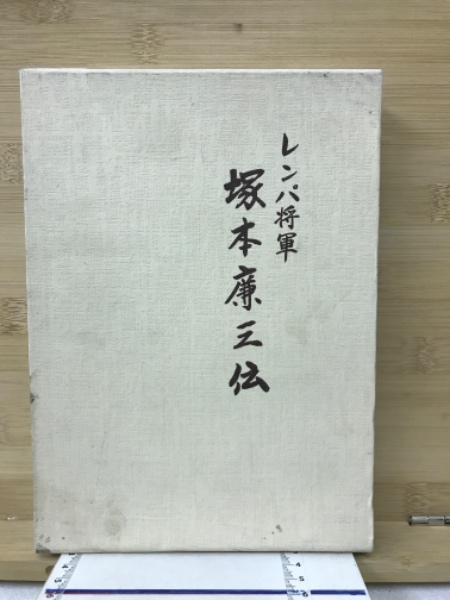 レンパ将軍
塚本廉三伝